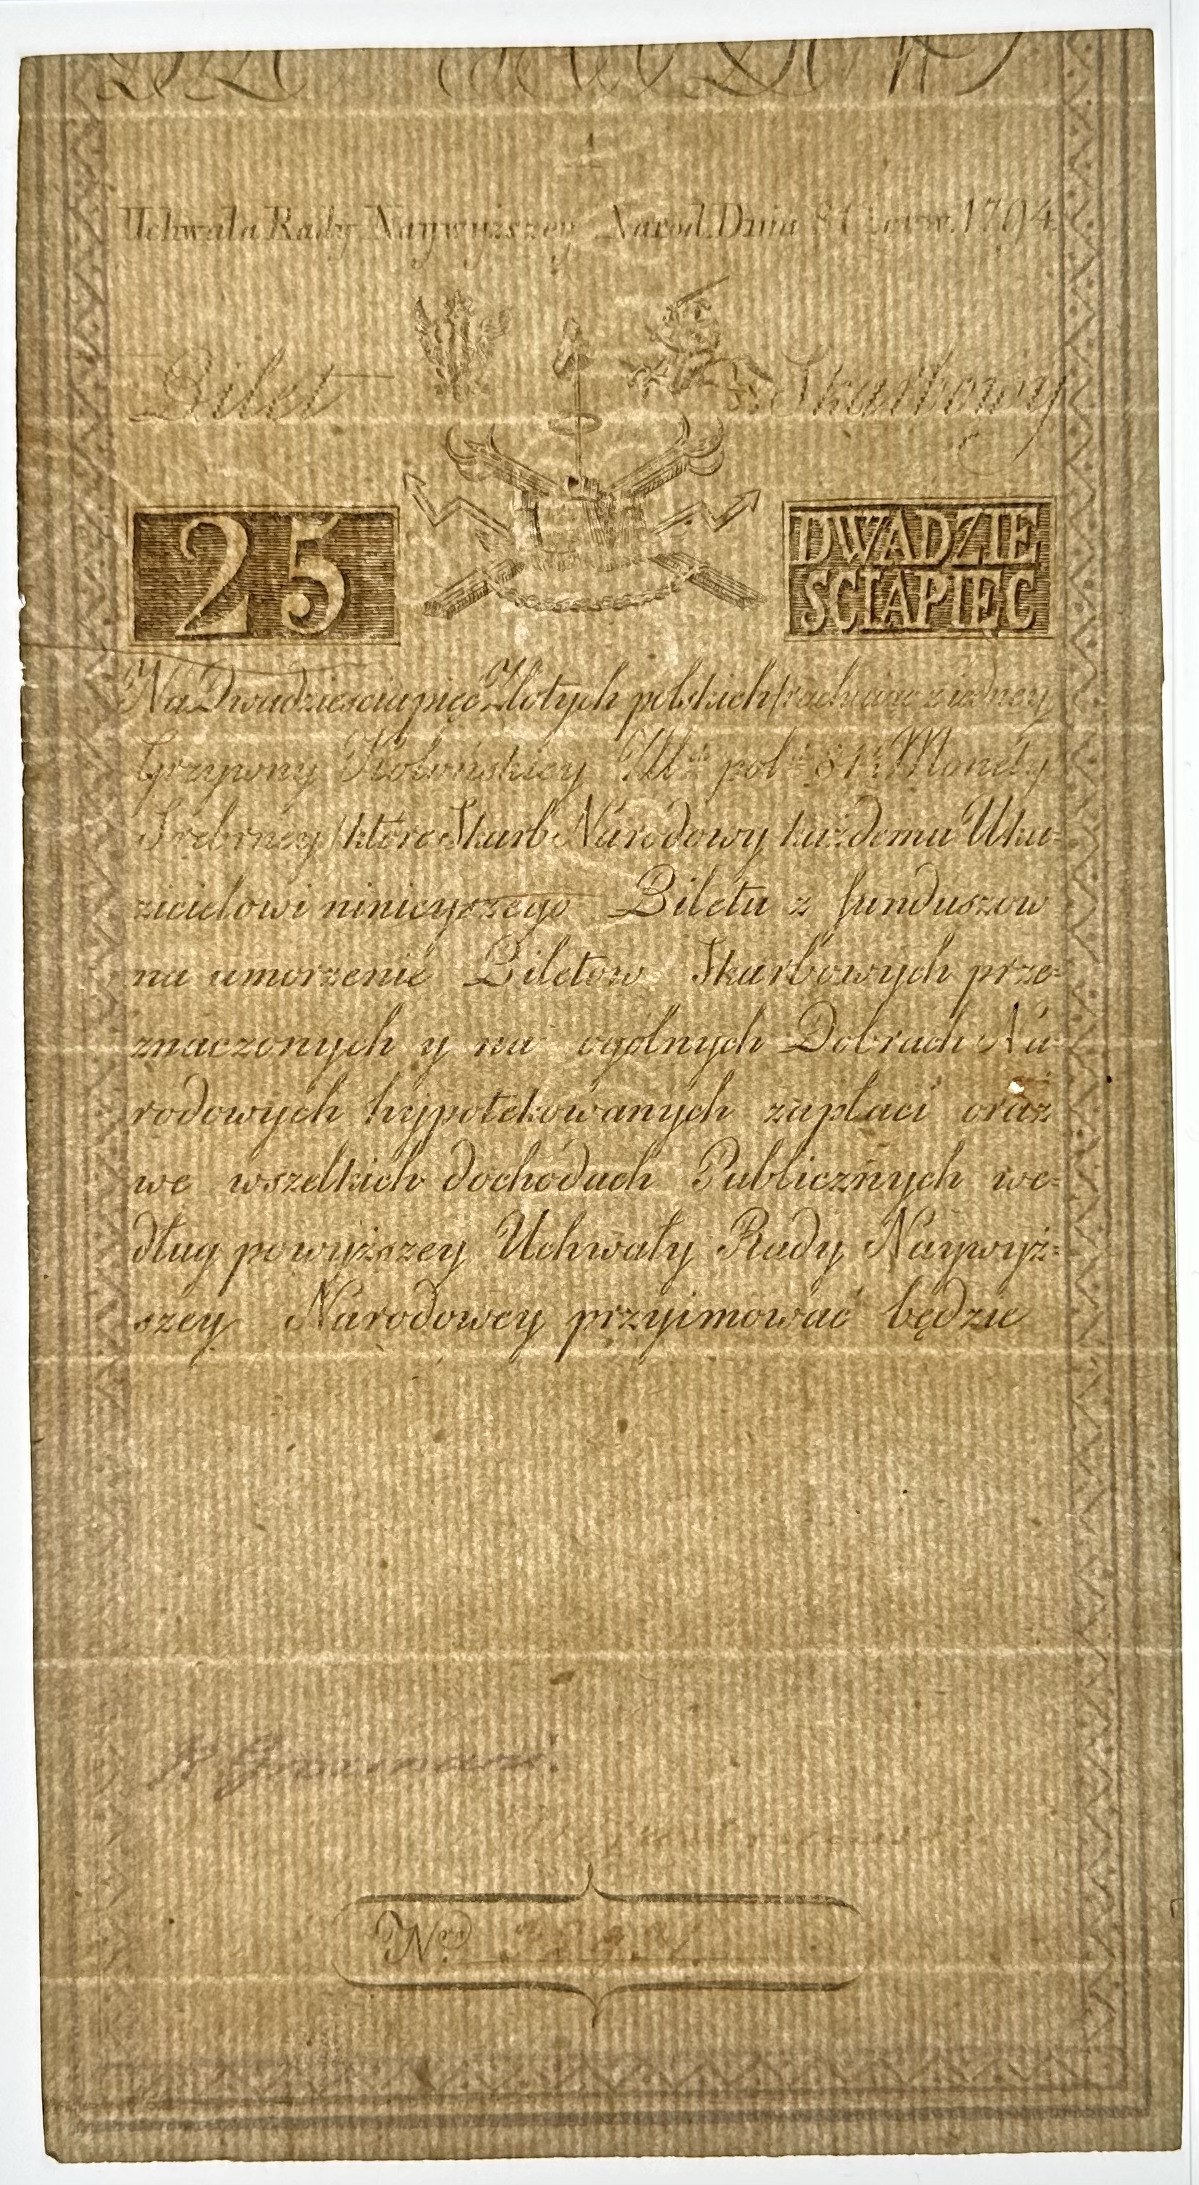 A
Uchwała Rady Naywyższey Narod. Dnia 8 Czerw. 1794
Bilet Skarbowy
25
DWADZIE
SCIAPIEC
Na Dwadzieściapięć Złotych polskich / rachuiąc z iedney
Grzywny Kolońskiey Zł. pol. 84½ Monety
Srebrney / które Skarb Narodowy każdemu Uka-
zicielowi ninieyszego Biletu z funduszow
na umorzenie Biletow Skarbowych prze-
znaczonych y na ogolnych Dobrach Na-
rodowych hypotekowanych zapłaci oraz
we wszelkich dochodach Publicznych we-
dług powyższey Uchwały Rady Naywyż-
szey Narodowey przyimować będzie
Nro